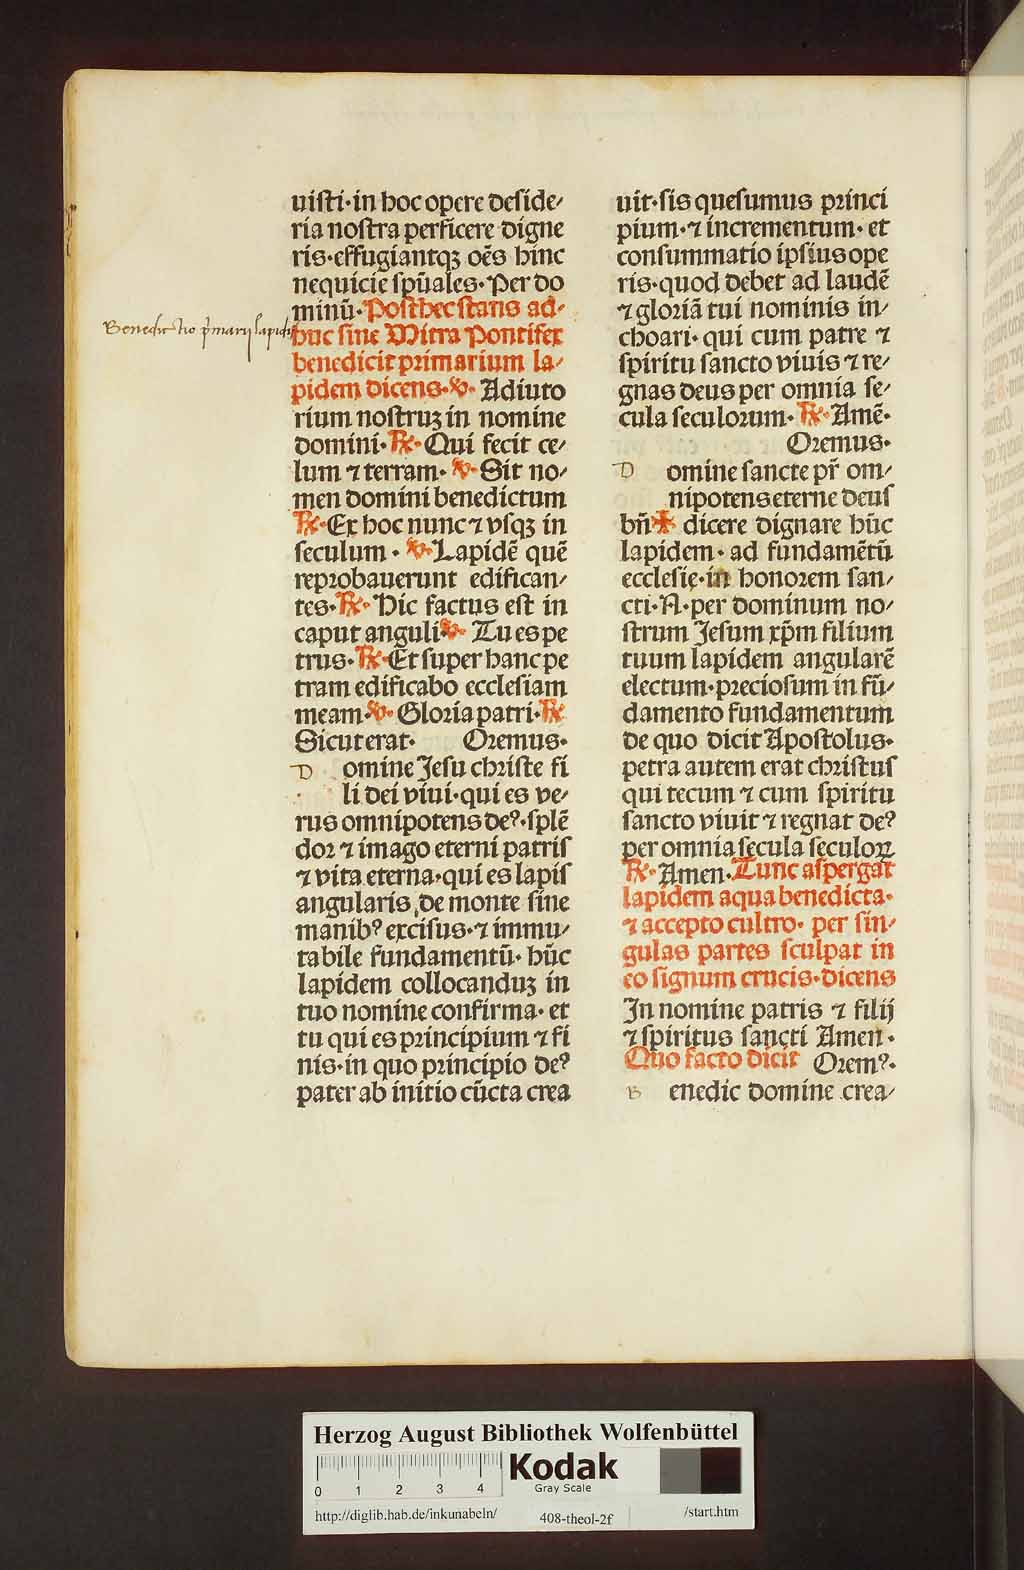 uisti·in hoc opere deside⸗
ria nostra perficere digne
ris·effugiantqꝫ oēs hinc
nequicie spūales·Per do
minū·Posthec stans ad⸗
Benedictio pͥmarij lapidis
huc sine Mitra Pontifex
benedicit primarium la⸗
pidem dicens·℣·Adiuto
rium nostruꝫ in nomine
domini·℟·Qui fecit ce⸗
lum ⁊ terram·℣·Sit no⸗
men domini benedictum
℟·Ex hoc nunc ⁊ vsqꝫ in
seculum·℣·Lapidē quē
reprobauerunt edifican⸗
tes·℟·Hic factus est in
caput anguli·℣·Tu es pe
trus·℟·Et super hanc pe
tram edificabo ecclesiam
meam·℣·Gloria patri·℟
Sicut erat· Oremus·
D omine Jesu christe fi
li dei viui·qui es ve⸗
rus omnipotens deꝰ·splē
dor ⁊ imago eterni patris
⁊ vita eterna·qui es lapis
angularis de monte sine
manibꝰ excisus·⁊ immu⸗
tabile fundamentū·hūc
lapidem collocanduꝫ in
tuo nomine confirma·et
tu qui es principium ⁊ fi
nis·in quo principio deꝰ
pater ab initio cūcta crea
uit·sis quesumus princi
pium·⁊ incrementum·et
consummatio ipsius ope
ris·quod debet ad laudē
⁊ gloriā tui nominis in⸗
choari·qui cum patre ⁊
spiritu sancto viuis ⁊ re⸗
gnas deus per omnia se⸗
cula seculorum·℟·Amē·
Oremus·
D omine sancte pr̄ om⸗
nipotens eterne deus
bn̄✠ dicere dignare hūc
lapidem·ad fundamētū
ecclesie·in honorem san⸗
cti·N·per dominum no⸗
strum Jesum xp̄m filium
tuum lapidem angularē
electum·preciosum in fū⸗
damento fundamentum
de quo dicit Apostolus·
petra autem erat christus
qui tecum ⁊ cum spiritu
sancto viuit ⁊ regnat deꝰ
per omnia secula seculoꝝ
℟·Amen·Tunc aspergat
lapidem aqua benedicta·
⁊ accepto cultro·per sin⸗
gulas partes sculpat in
eo signum crucis·dicens
In nomine patris ⁊ filij
⁊ spiritus sancti Amen·
Quo facto dicit Oremꝰ·
B enedic domine crea⸗
Herzog August Bibliothek Wolfenbüttel
0 1 2 3 4
Kodak
Gray Scale
http://diglib.hab.de/inkunabeln/ 408-theol-2f /start.htm